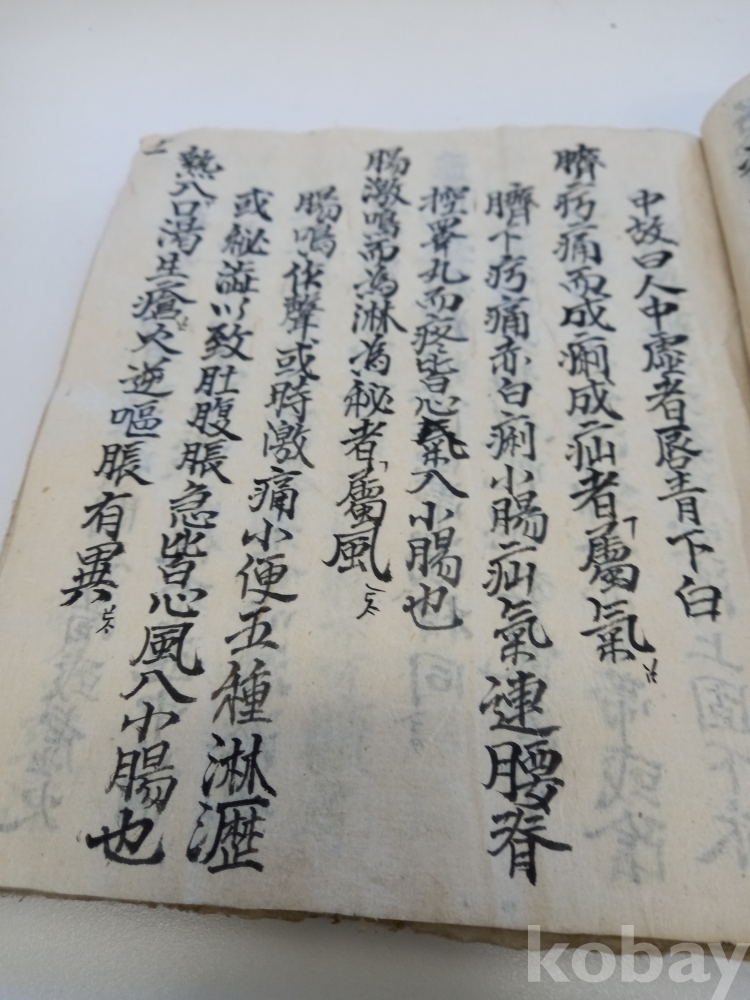 中故曰人中虚者唇青下白
臍㽲痛而成痢成疝者屬氣
臍下㽲痛赤白痢小腸疝氣連腰脊
控睪丸而疼皆心氣入小腸也
腸激鳴而為淋為秘者屬風
腸鳴作聲或時激痛小便五種淋瀝
或秘澁以致肚腹脹急皆心風入小腸也
熱入口渇生瘡火逆嘔脹有異
kobay